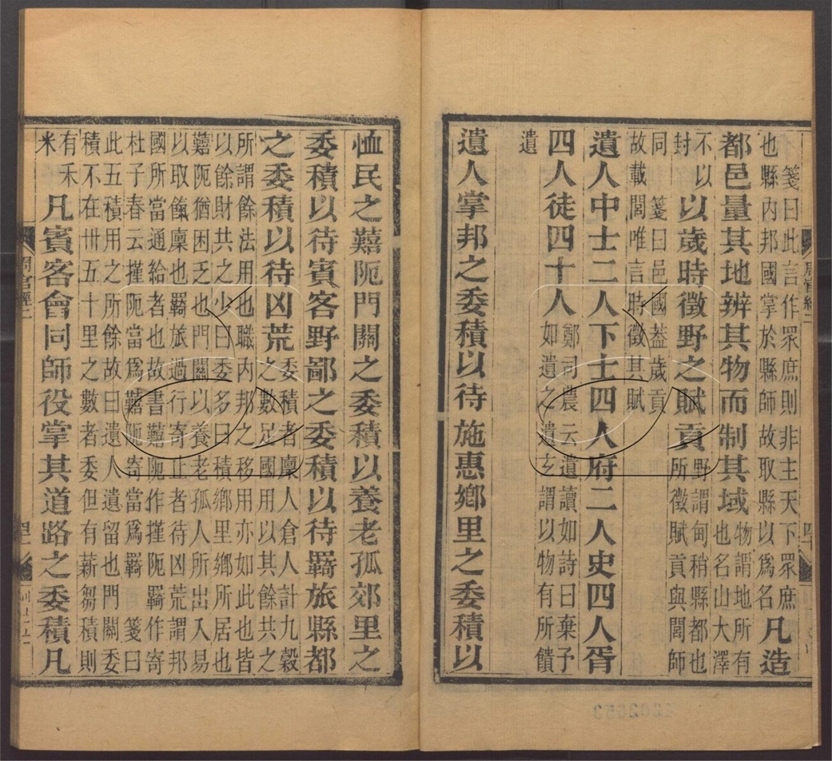 箋曰此言作眾庶則非主天下眾庶
也縣内邦國掌於縣師故取縣以為名
凡造
都邑量其地辨其物而制其域
物謂地所有
也名山大澤
不以
封
以歲時徵野之賦貢
野謂甸稍縣都也
所徵賦貢與閭師
同　箋曰邑國蓋歲貢
故載閭唯言時徵其賦
遺人中士二人下士四人府二人史四人胥
四人徒四十人
鄭司農云遺讀如詩曰棄予
如遺之遺玄謂以物有所饋
遺
遺人掌邦之委積以待施惠鄉里之委積以
恤民之囏阨門關之委積以養老孤郊里之
委積以待賓客野鄙之委積以待羇旅縣都
之委積以待凶荒
委積者廩人倉人計九穀
之數足國用以其餘共之
所謂餘法用也職内邦之移用亦如此也皆
以餘財共之少曰委多曰積鄉里鄉所居也
囏阨猶困乏也門關以養老孤人所出入易
以取餼廩也羇旅過行寄止者待凶荒謂邦
國所當通給者也故書囏阨作㨷阨羇作寄
杜子春云㨷阨當為囏阨寄當為羇　箋曰
此五積用之所餘故曰遺人遺留也門關委
積不在卅五十里之數者委但有薪芻積則
有禾
米
凡賓客會同師役掌其道路之委積凡
周官經二